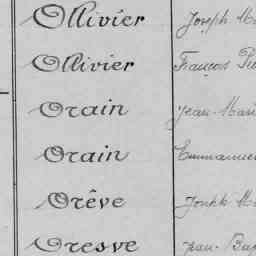 Ollivier Joseph Ma
Ollivier François Pie
Orain Jean-Mari
Orain Emmanuel
Orêve Joseph Ma
Oresve Jean-Bap